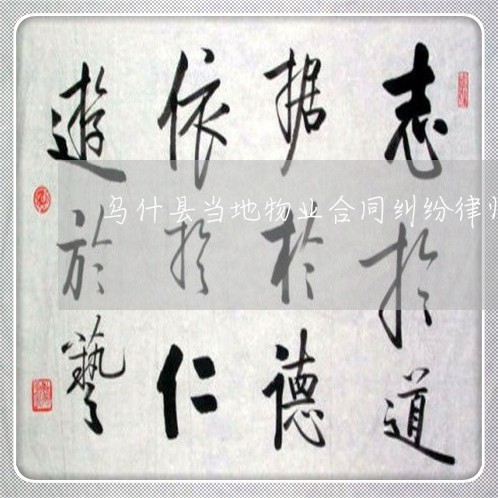 志於道
据於德
依於仁
遊於藝
乌什县当地物业合同纠纷律